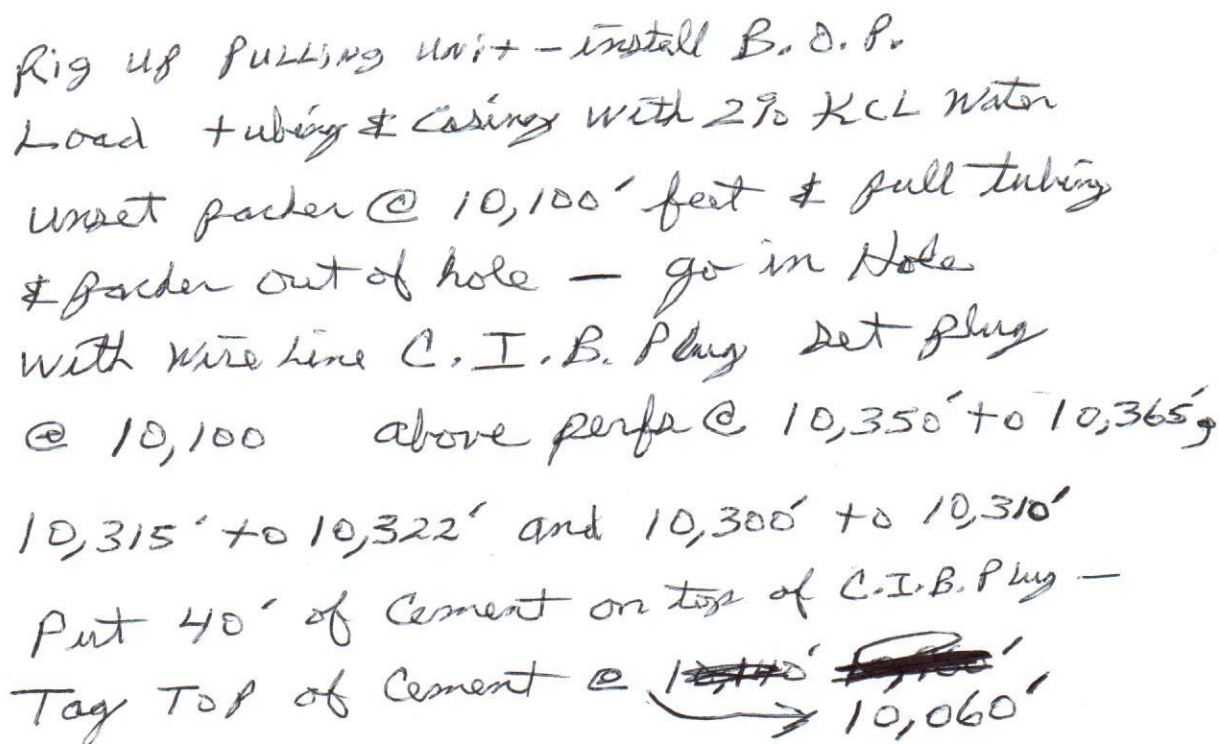 Rig up Pulling unit - install B.O.P.
Load tubing & Casing with 2% KCL Water
unset packer @ 10,100' feet & pull tubing
& packer out of hole — go in Hole
with wire line C.I.B. Plug set plug
@ 10,100 above perfs @ 10,350' to 10,365',
10,315' to 10,322' and 10,300' to 10,310'
Put 40' of Cement on top of C.I.B. Plug —
Tag Top of Cement @
10,060'